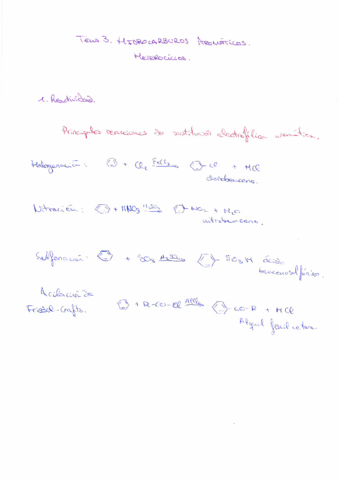 Tema 3. HIDROCARBUROS AROMÁTICOS.
HETEROCICLOS.
1. Reactividad.
Principales reacciones de sustitución electrofílica aromática.
Halogenación: + Cl₂ FeCl₃ Cl + HCl
clorobenceno.
Nitración: + HNO₃ H₂SO₄ NO₂ + H₂O
nitrobenceno.
Sulfonación: + SO₃ H₂SO₄ SO₃H ácido
bencenosulfónico.
Acilación de
Friedel-Crafts. + R-CO-Cl AlCl₃ CO-R + HCl
Alquil fenil cetona.